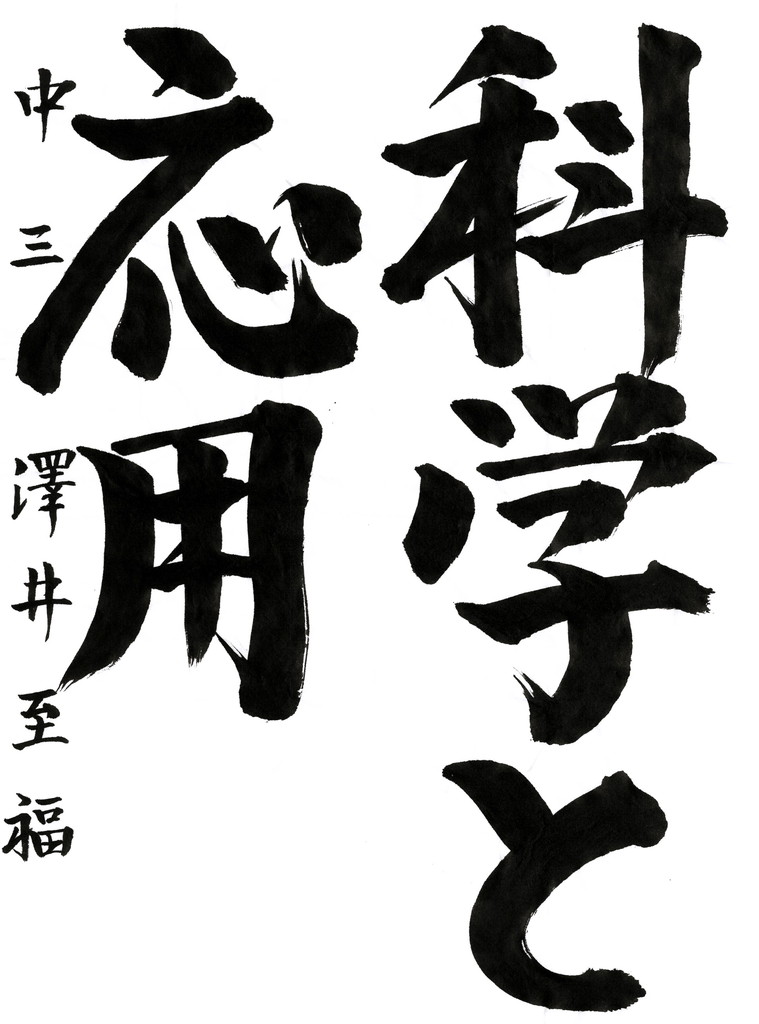 科学と
応用
中三 澤井至福